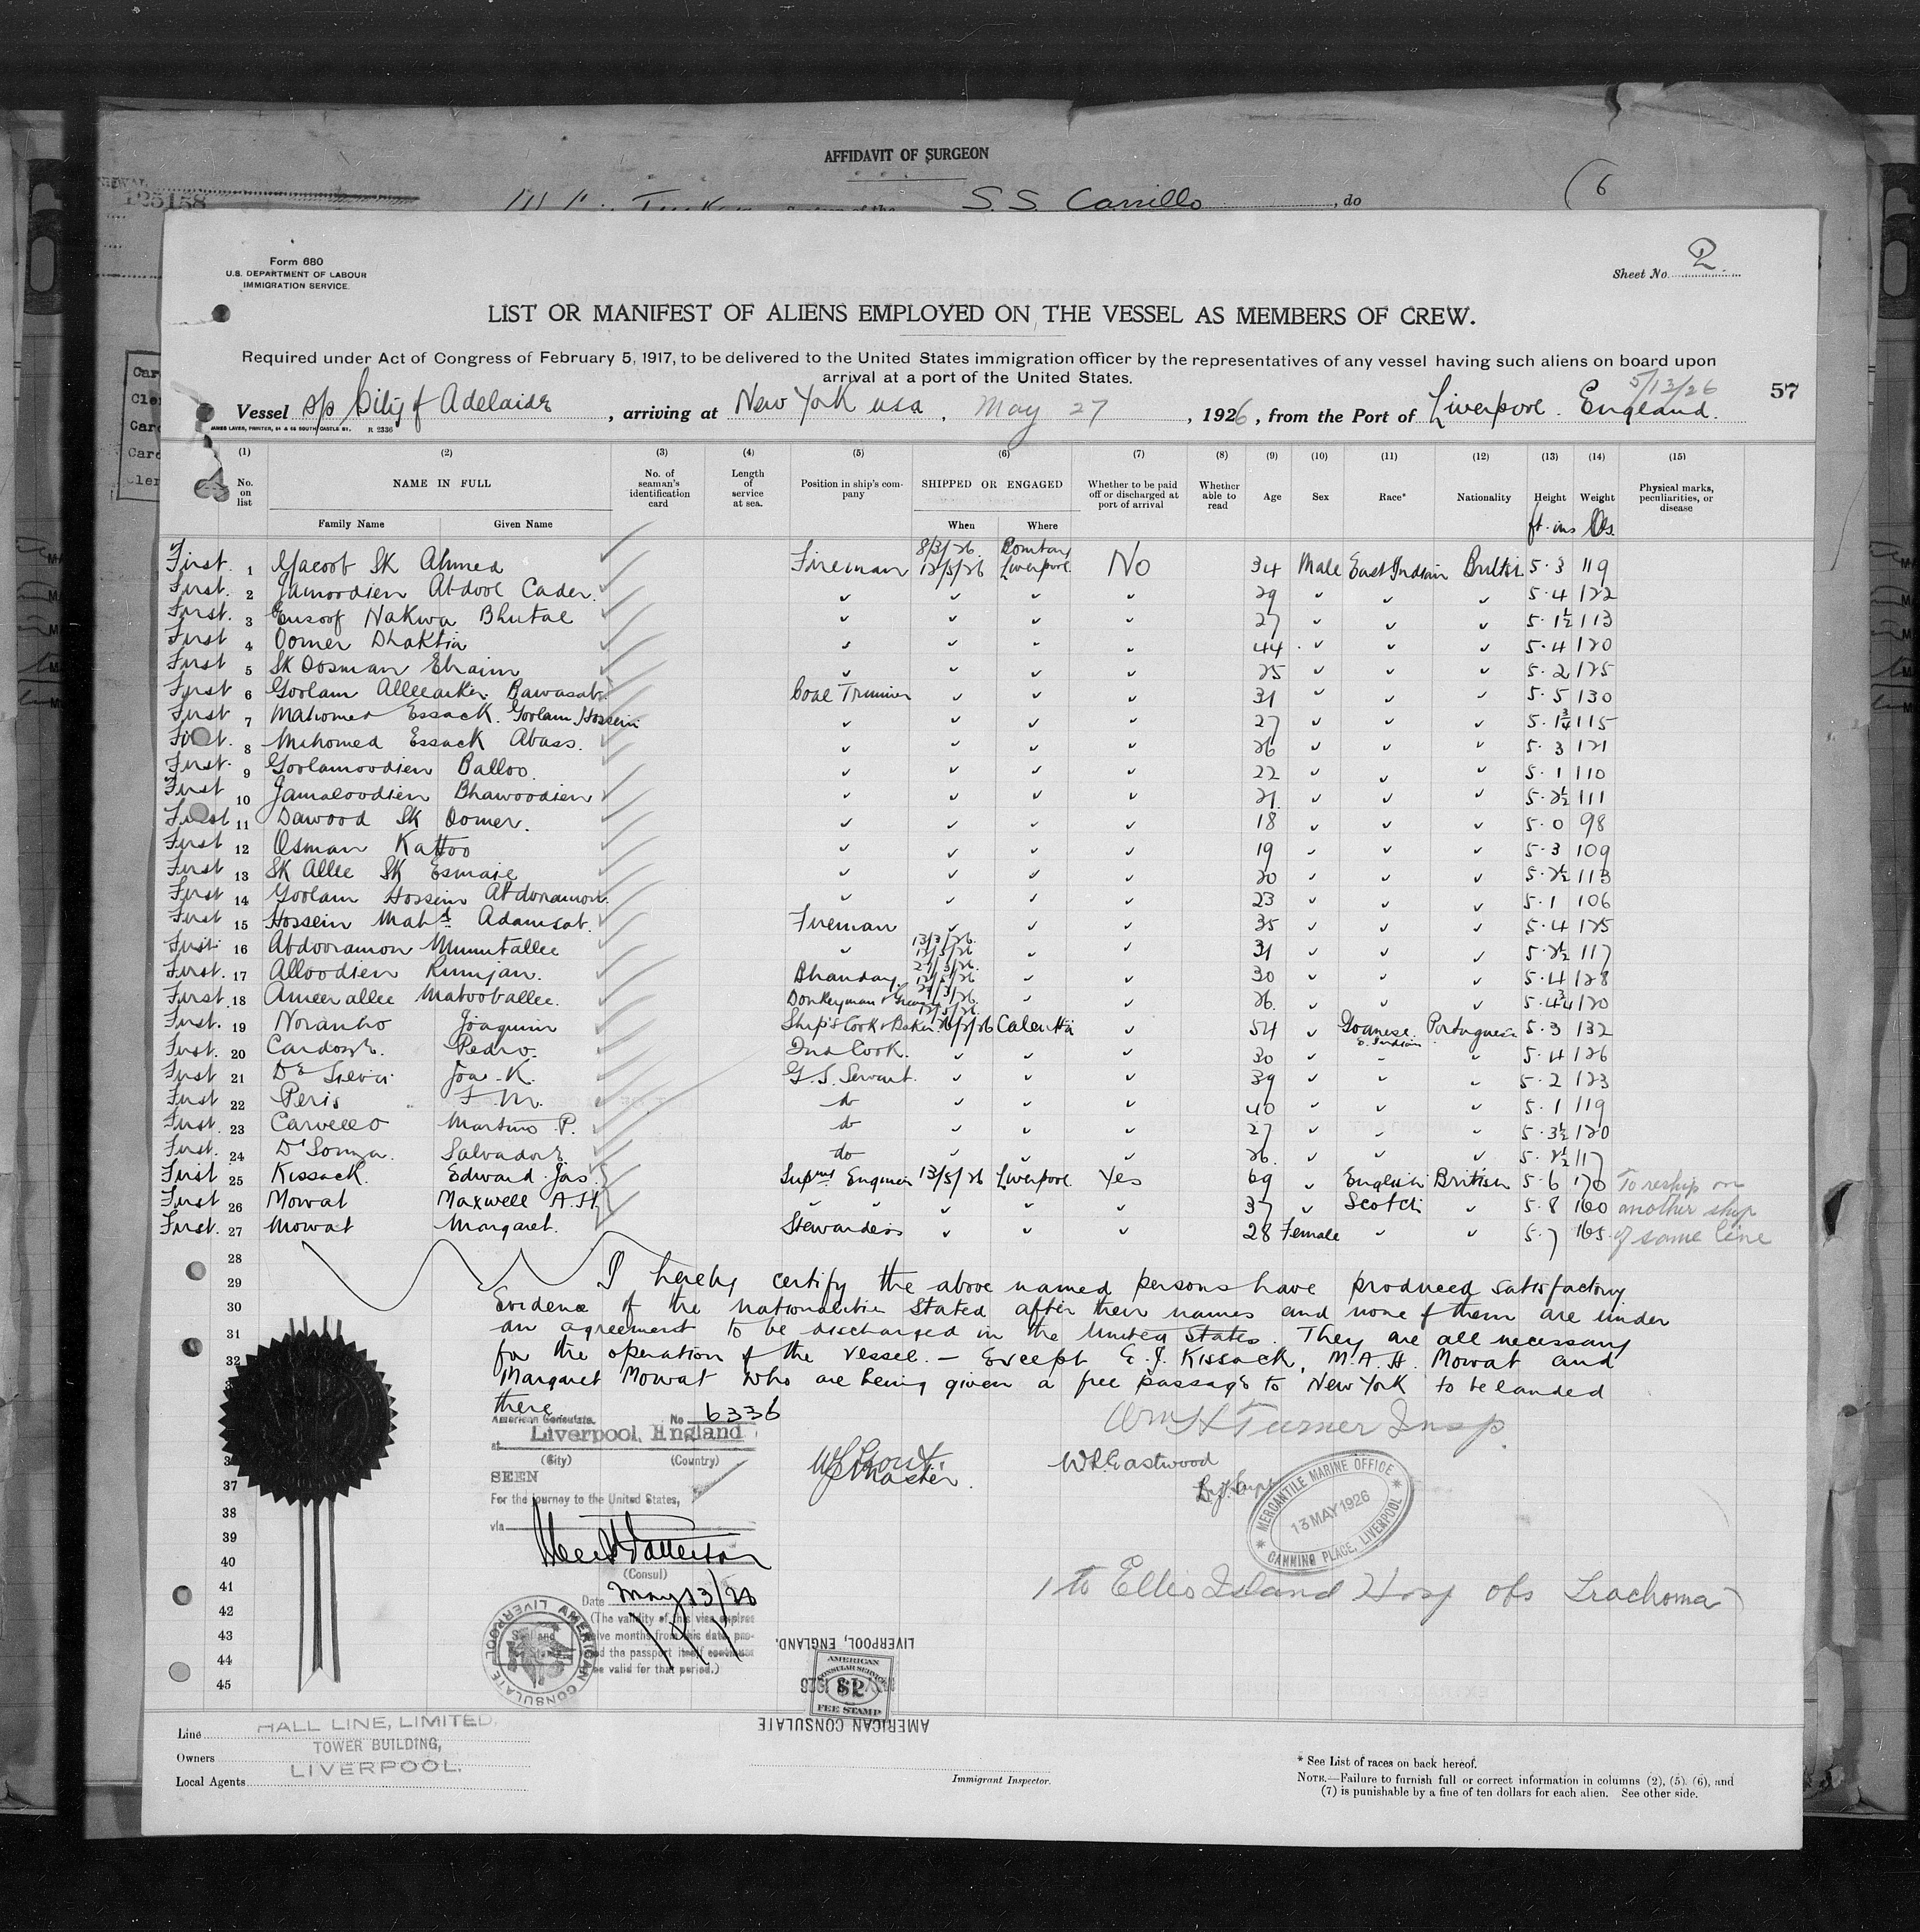 AFFIDAVIT OF SURGEON
125158
S. S. Carrillo, do
(6
Form 680
U.S. DEPARTMENT OF LABOUR
IMMIGRATION SERVICE.
Sheet No. 2
LIST OR MANIFEST OF ALIENS EMPLOYED ON THE VESSEL AS MEMBERS OF CREW.
Required under Act of Congress of February 5, 1917, to be delivered to the United States immigration officer by the representatives of any vessel having such aliens on board upon
arrival at a port of the United States.
5/13/26
57
Vessel s/s City of Adelaide, arriving at New York usa, May 27, 1926, from the Port of Liverpool. England.
JAMES LAVER, PRINTER, 64 & 66 SOUTH CASTLE ST. R 2336
(1) (2) (3) (4) (5) (6) (7) (8) (9) (10) (11) (12) (13) (14) (15)
No. on list NAME IN FULL No. of seaman's identification card Length of service at sea. Position in ship's company SHIPPED OR ENGAGED Whether to be paid off or discharged at port of arrival Whether able to read Age Sex Race* Nationality Height Weight Physical marks, peculiarities, or disease
Family Name Given Name When Where ft. ins lbs.
8/3/26. Bombay
First. 1 Yacoob SK Ahmed Fireman 12/5/26 Liverpool. No 34 Male East Indian British 5.3 119
First. 2 Jamoodien Abdool Cader. 29 5.4 122
First. 3 Eusoof Nakwa Bhutal 27 5.1½ 113
First 4 Oomer Dhaktia 44 5.4 120
First 5 SK Oosman Ebraim 25 5.2 125
First 6 Goolam Alleearker Bawasab Coal Trimmer 31 5.5 130
First 7 Mahomed Essack. Goolam Hossein 27 5.1¾ 115
First. 8 Mahomed Essack Abass. 26 5.3 121
First. 9 Goolamoodien Balloo. 22 5.1 110
First 10 Jamaloodien Bhawoodien 21. 5.2½ 111
First 11 Dawood SK Oomer. 18 5.0 98
First 12 Osman Kattoo 19 5.3 109
First 13 SK Allee SK Esmail 20 5.2½ 113
First 14 Goolam Hossein Abdoramon. 23 5.1 106
First 15 Hossein Mahd Adamsab. Fireman 35 5.4 125
13/3/26.
First. 16 Abdooramon Mumtallee 12/5/26 31 5.2½ 117
2/3/26.
First. 17 Alloodien Rumjan. Bhandary. 12/5/26 30 5.4 128
First. 18 Ameerallee Matooballee. Donkeyman & Greaser 26. 5.4¾ 120
First. 19 Noranho Joaquim Ship's Cook & Baker. Calcutta 54 Goanese. E. Indian Portuguese 5.3 132
First. 20 Cardoze. Pedro. 2nd Cook. 30 5.4 126
First. 21 De Silva Joa. K. G. S. Servant. 39 5.2 123
First 22 Peris F. M. do 40 5.1 119
First. 23 Carvello Martino P. do 27 5.3½ 120
First. 24 D'Souza. Salvadore do 26. 5.2½ 117
First 25 Kissack. Edward Jas. Supny. Engineer 13/5/26 Liverpool. Yes 69 English British 5.6 170 To reship on
First 26 Mowat Maxwell A. H. 37 Scotch 5.8 160 another ship
First. 27 Mowat Margaret. Stewardess 28 Female 5.7 165. of same line
28
29
30
31
32
37
38
39
40
41
42
43
44
45
I hereby certify the above named persons have produced satisfactory
Evidence of the nationalities stated after their names and none of them are under
an agreement to be discharged in the United States. They are all necessary
for the operation of the vessel. — Except E. J. Kissack, M. A. H. Mowat and
Margaret Mowat who are being given a free passage to New York to be landed
there
American Consulate. No 6336
at Liverpool, England
(City) (Country)
SEEN
For the journey to the United States,
via
(Consul)
Date May 13/26
(The validity of this visa expires
twelve months from this date, pro-
vided the passport itself continues
to be valid for that period.)
Wm H Turner Insp.
Master.
W.R. Eastwood
MERCANTILE MARINE OFFICE
13 MAY 1926
CANNING PLACE, LIVERPOOL
1 to Ellis Island Hosp obs Trachoma
AMERICAN CONSULATE LIVERPOOL
LIVERPOOL, ENGLAND.
AMERICAN
CONSULAR SERVICE
$2
FEE STAMP
AMERICAN CONSULATE
Line HALL LINE, LIMITED.
TOWER BUILDING,
Owners LIVERPOOL.
Local Agents
Immigrant Inspector.
* See List of races on back hereof.
NOTE.—Failure to furnish full or correct information in columns (2), (5), (6), and
(7) is punishable by a fine of ten dollars for each alien. See other side.